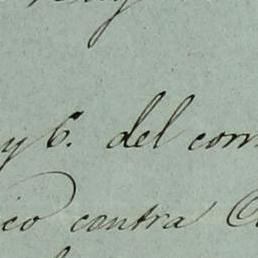 y 6. del com
ico contra